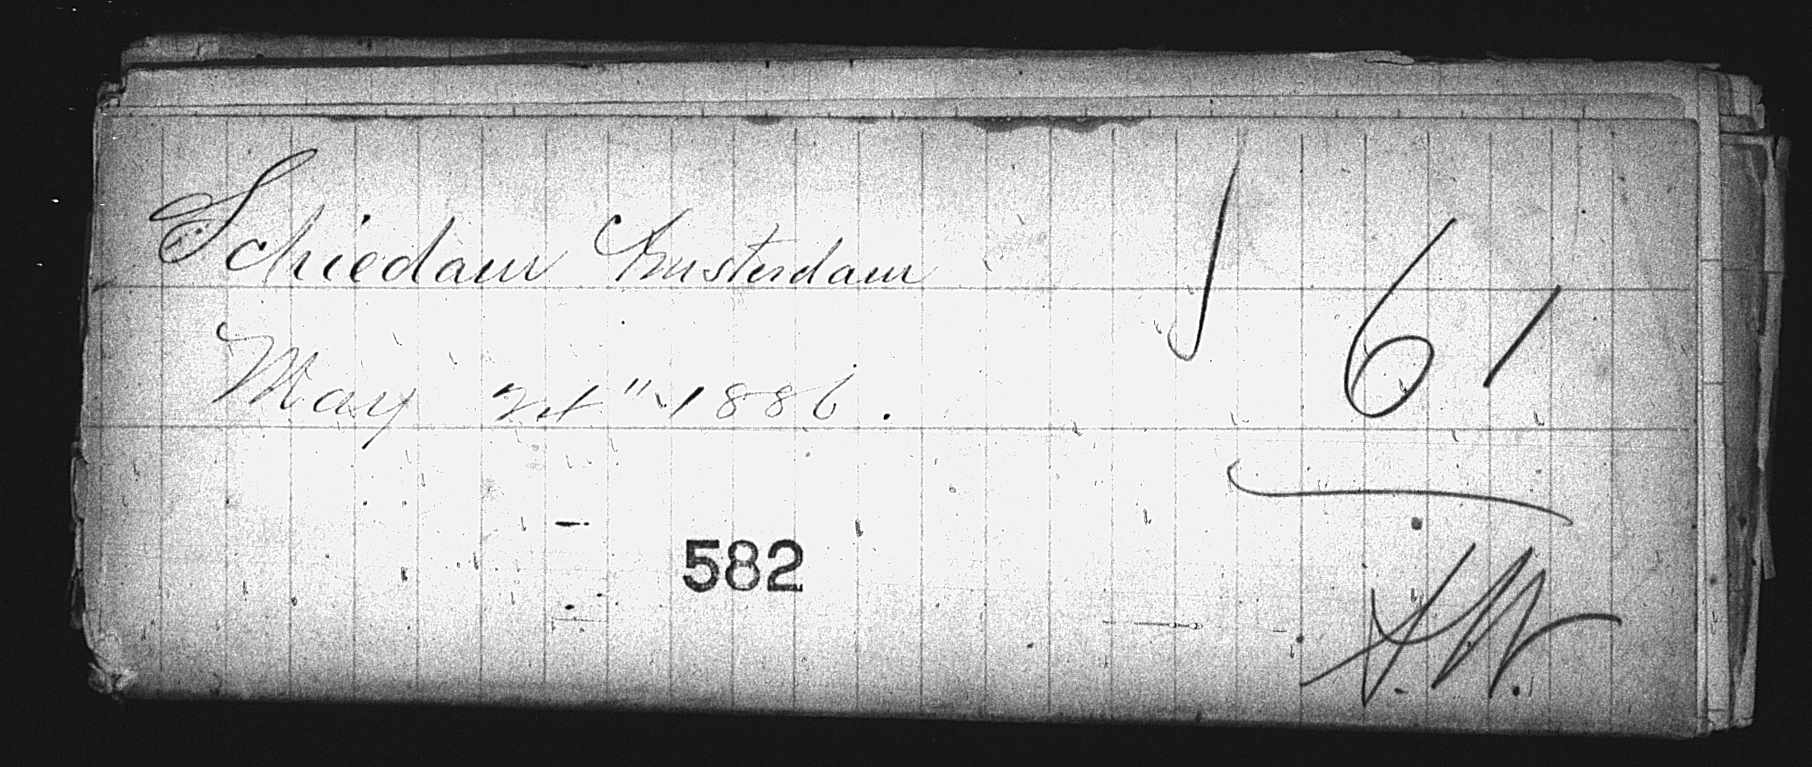 Schiedam Amsterdam
61
May 21st" 1886.
582